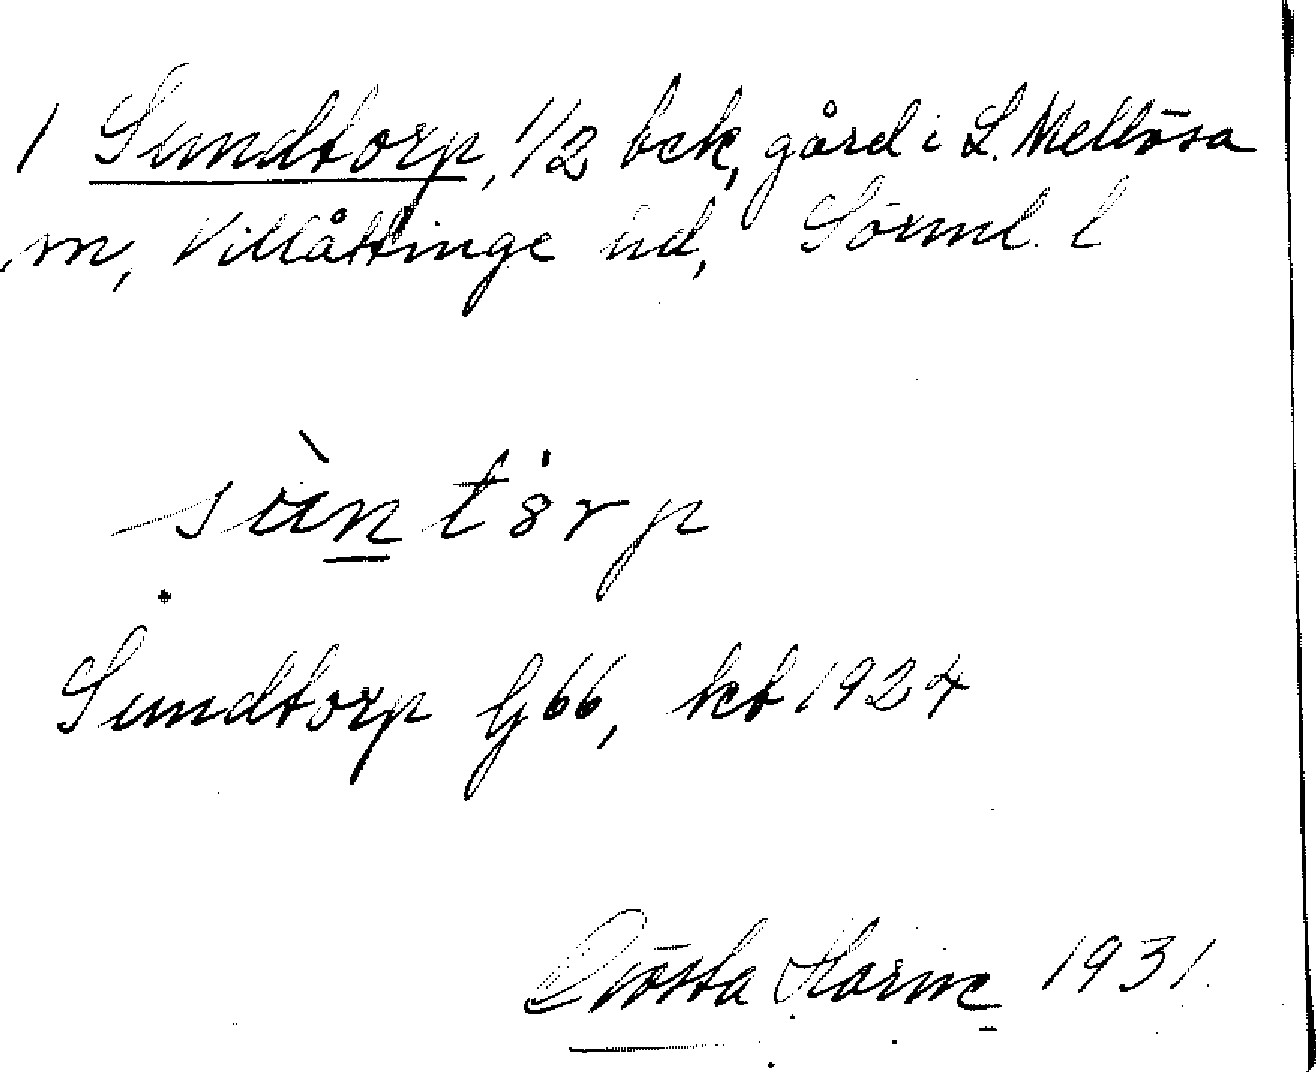 1 Sundtorp, 1/2 bck, gård i L. Mellösa
sn, Villåttinge hd, Sörml. l
sùntȯrp
Sundtorp G66, kb 1924
Gösta 1931.